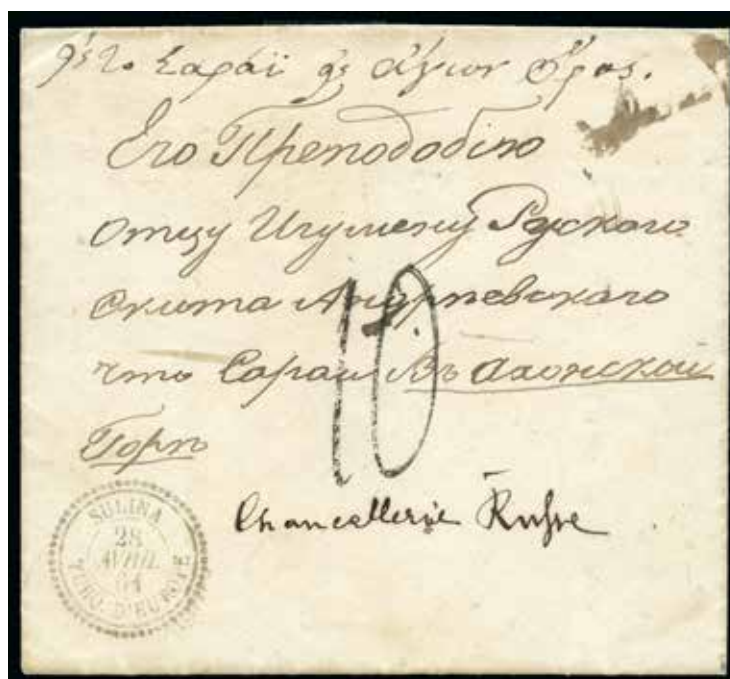 Σαράϊ άγιον όρος.
Его Преподобію
отцу Игумену Руского
Скита Андріевскаго
что Сараи Въ Аѳонской
Горѣ
10
Chancellerie Russe
SULINA
28
AVRIL
61
TURQ. D'EUROPE